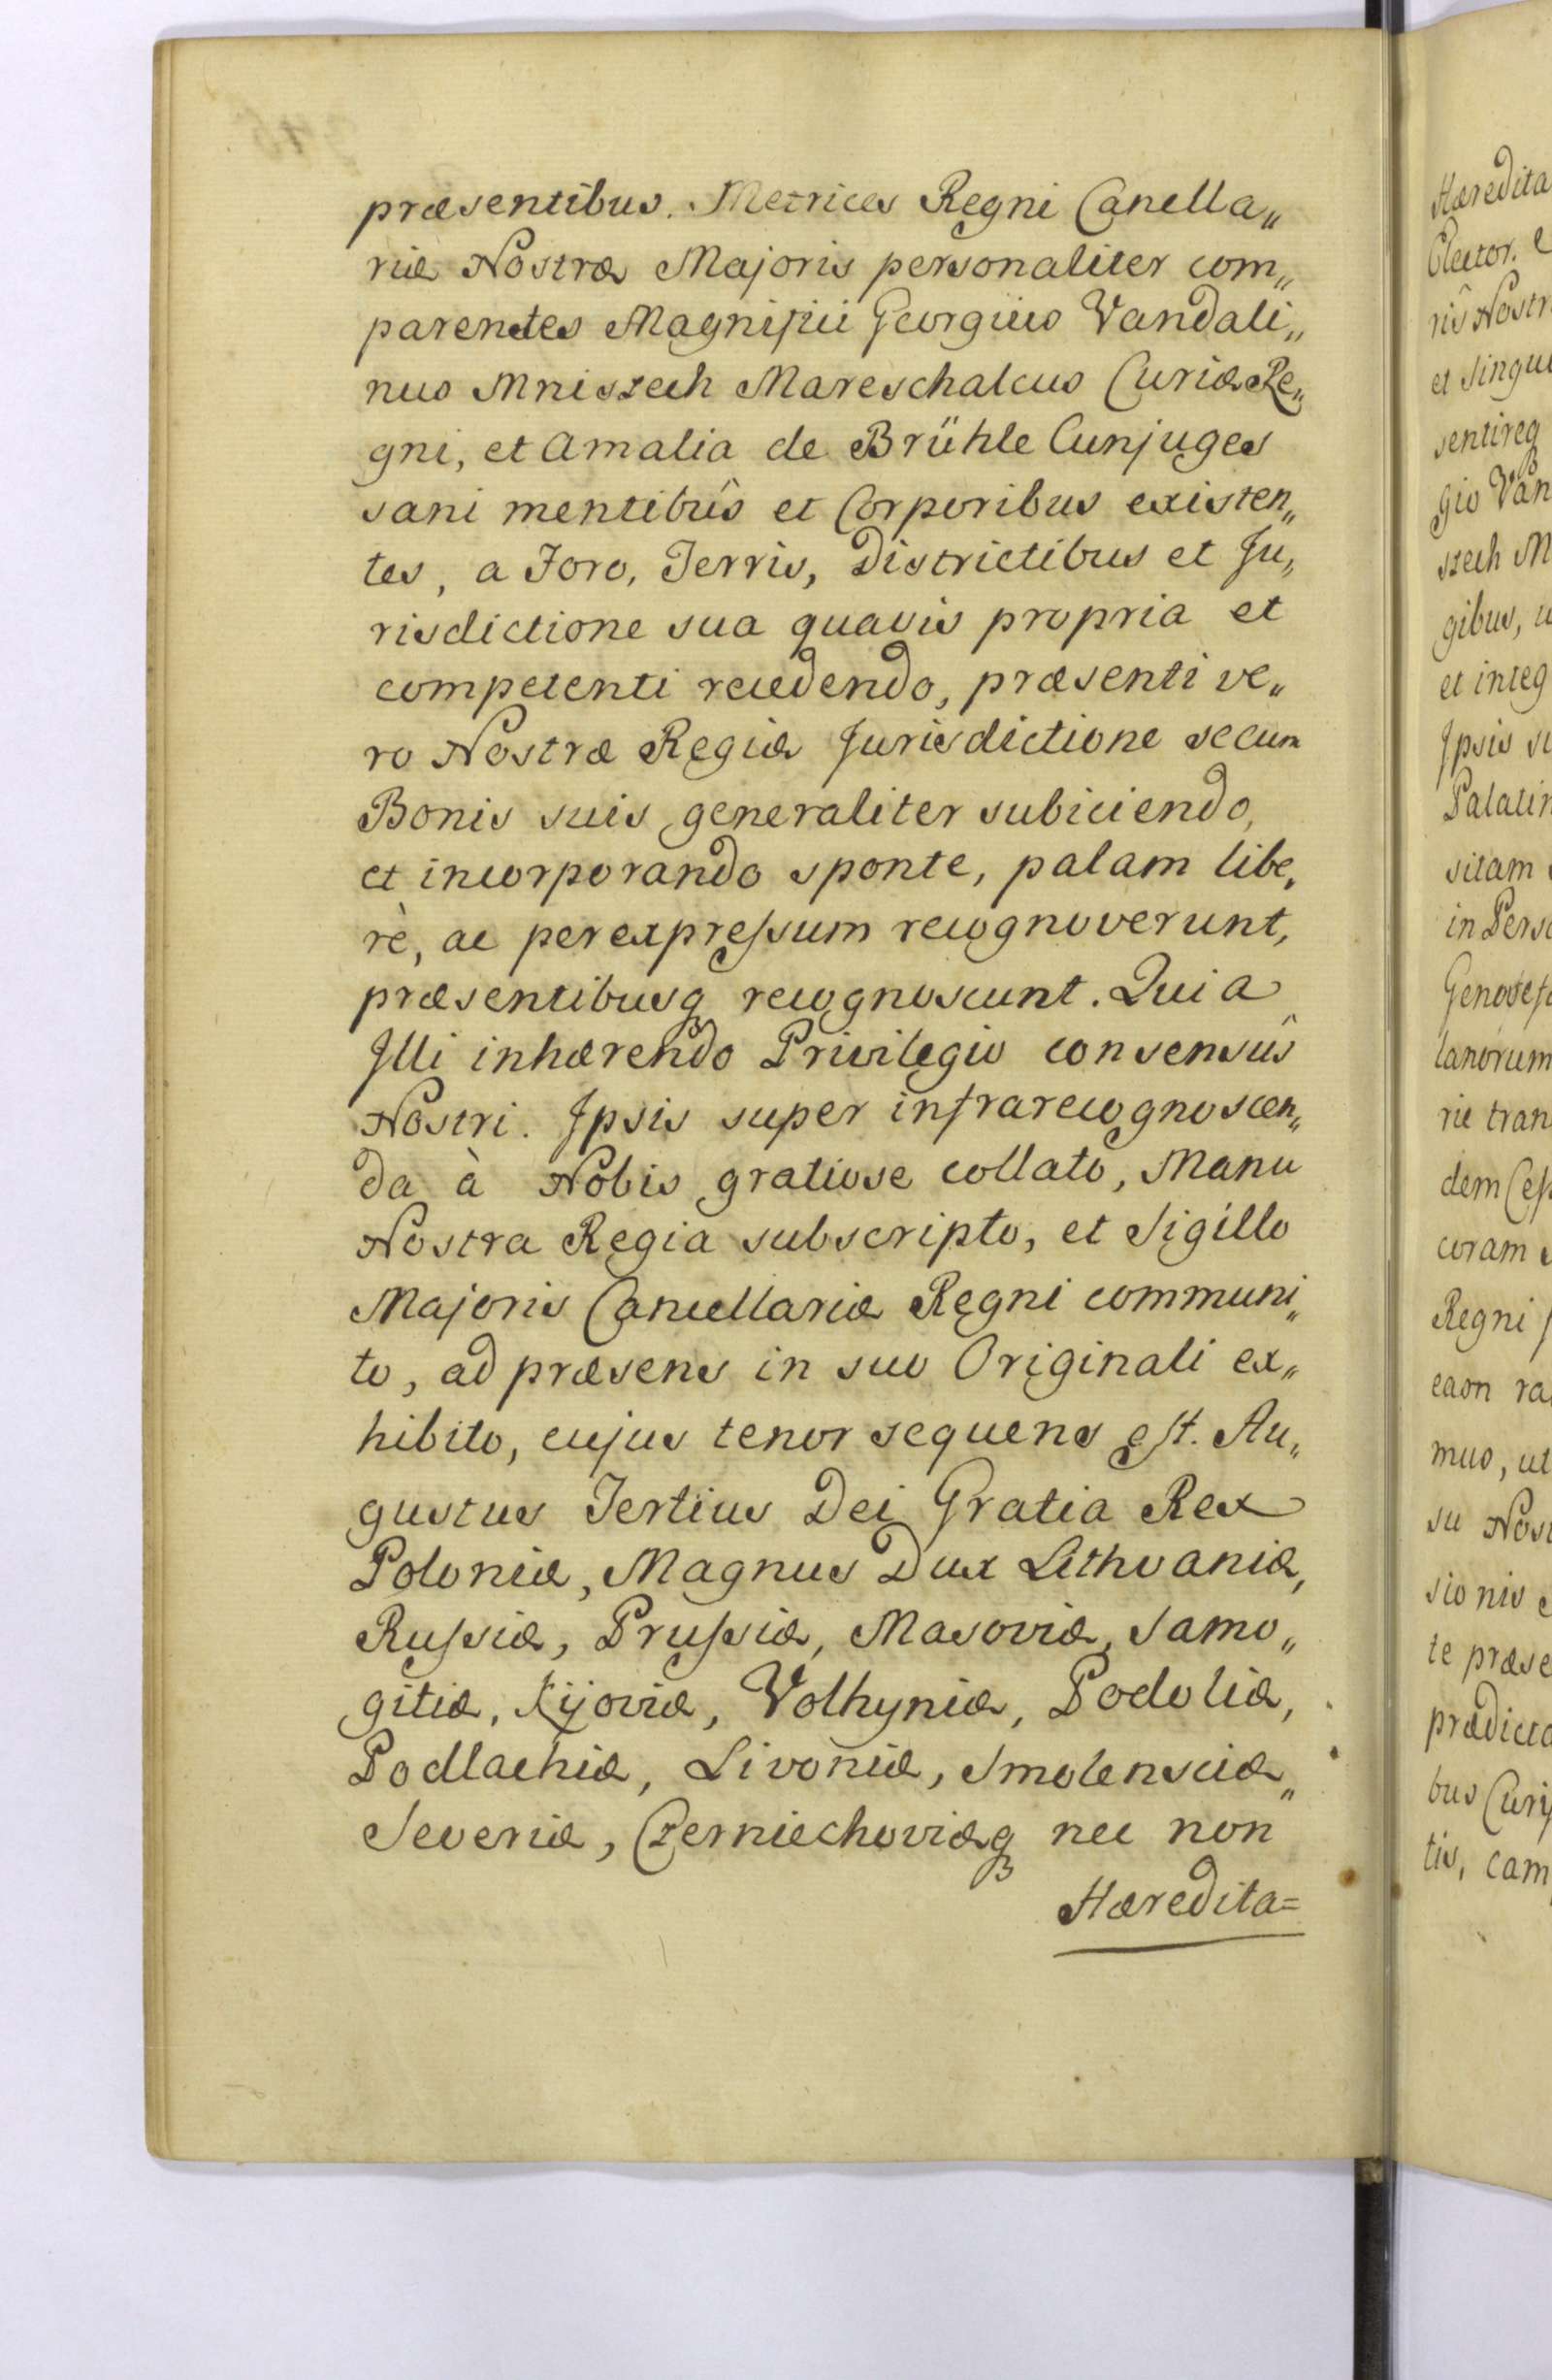 præsentibus. Metrices Regni Canella„
riæ Nostræ Majoris personaliter com„
parentes Magnifici Georgius Vandali„
nus Mniszech Mareschalcus Curiæ Re„
gni, et Amalia de Brühle Cunjuges
sani mentibûs et Corporibus existen„
tes, a Foro, Terris, Districtibus et Ju„
risdictione sua quavis propria et
competenti recedendo, præsenti ve„
ro Nostræ Regiæ Jurisdictione secum
Bonis suis generaliter subiciendo,
et incorporando sponte, palam libe„
rè, ac per expressum recognoverunt,
præsentibusq recognoscunt. Quia
Illi inhærendo Privilegio consensûs
Nostri. Ipsis super infrarecognoscen„
da à Nobis gratiose collato, Manu
Nostra Regia subscripto, et Sigillo
Majoris Cancellariæ Regni communi„
to, ad præsens in suo Originali ex„
hibito, cujus tenor sequens est. Au„
gustus Tertius Dei Gratia Rex
Poloniæ, Magnus Dux Lithvaniæ,
Russiæ, Prussiæ, Masoviæ, Samo„
gitiæ, Kijoviæ, Volhyniæ, Podoliæ,
Podlachiæ, Livoniæ, Smolensciæ„
Severiæ, Czerniechoviæq nec non
Hæredita=
Hæredita
Elector. e
riis Nostr
et Singul
sentireq
gio Van
szech M
gibus, u
et integ
Ipsis su
Palatin
sitam
in Perso
Genovefa
lanorum
rie tran
dem Cess
coram
Regni
eaon ra
mus, ut
su Nost
sionis
te præse
prædicta
bus Curi
tis, cam